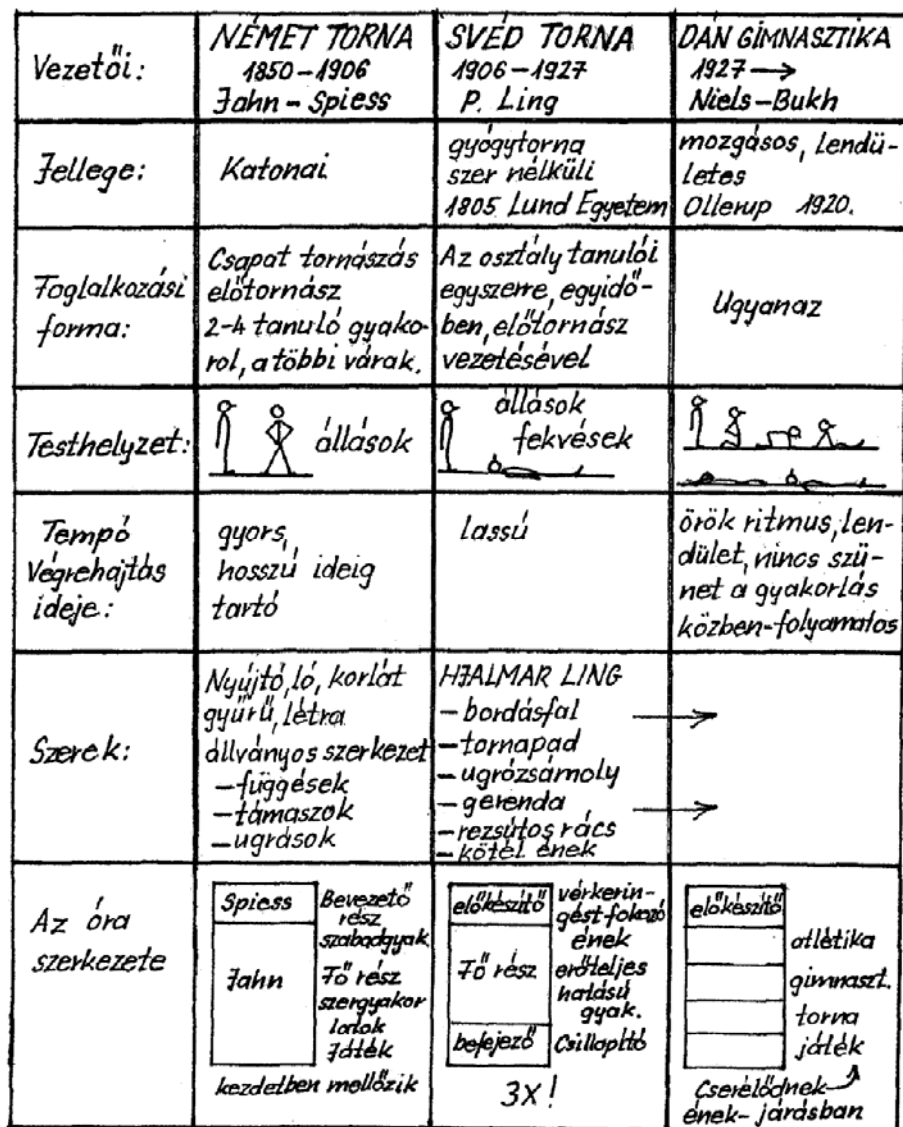 Vezetői:
NÉMET TORNA
1850-1906
Jahn - Spiess
SVÉD TORNA
1906-1927
P. Ling
DÁN GIMNASZTIKA
1927→
Niels-Bukh
Jellege:
Katonai
gyógytorna
szer nélküli
1805 Lund Egyetem
mozgásos, lendü-
letes
Ollerup 1920.
Foglalkozási
forma:
Csapat tornászás
előtornász
2-4 tanuló gyako-
rol, a többi várak.
Az osztály tanulói
egyszerre, egyidő-
ben, előtornász
vezetésével
Ugyanaz
Testhelyzet:
állások
állások
fekvések
Tempó
Végrehajtás
ideje:
gyors,
hosszú ideig
tartó
lassú
örök ritmus, len-
dület, nincs szü-
net a gyakorlás
közben-folyamatos
Szerek:
Nyújtó, ló, korlát
gyűrű, létra
állványos szerkezet
-függések
-támaszok
-ugrások
HJALMAR LING
- bordásfal →
- tornapad
- ugrózsámoly
- gerenda →
- rezsútos rács
- kötél ének
Az óra
szerkezete
Spiess
Bevezető
rész
szabadgyak.
Jahn
Fő rész
szergyakor
latok
Játék
kezdetben mellőzik
előkészítő
vérkerin-
gést fokozó
ének
Fő rész
erőteljes
hatású
gyak.
befejező
Csillapító
3x!
előkészítő
atlétika
gimnaszt.
torna
játék
Cserélődnek
ének- járásban